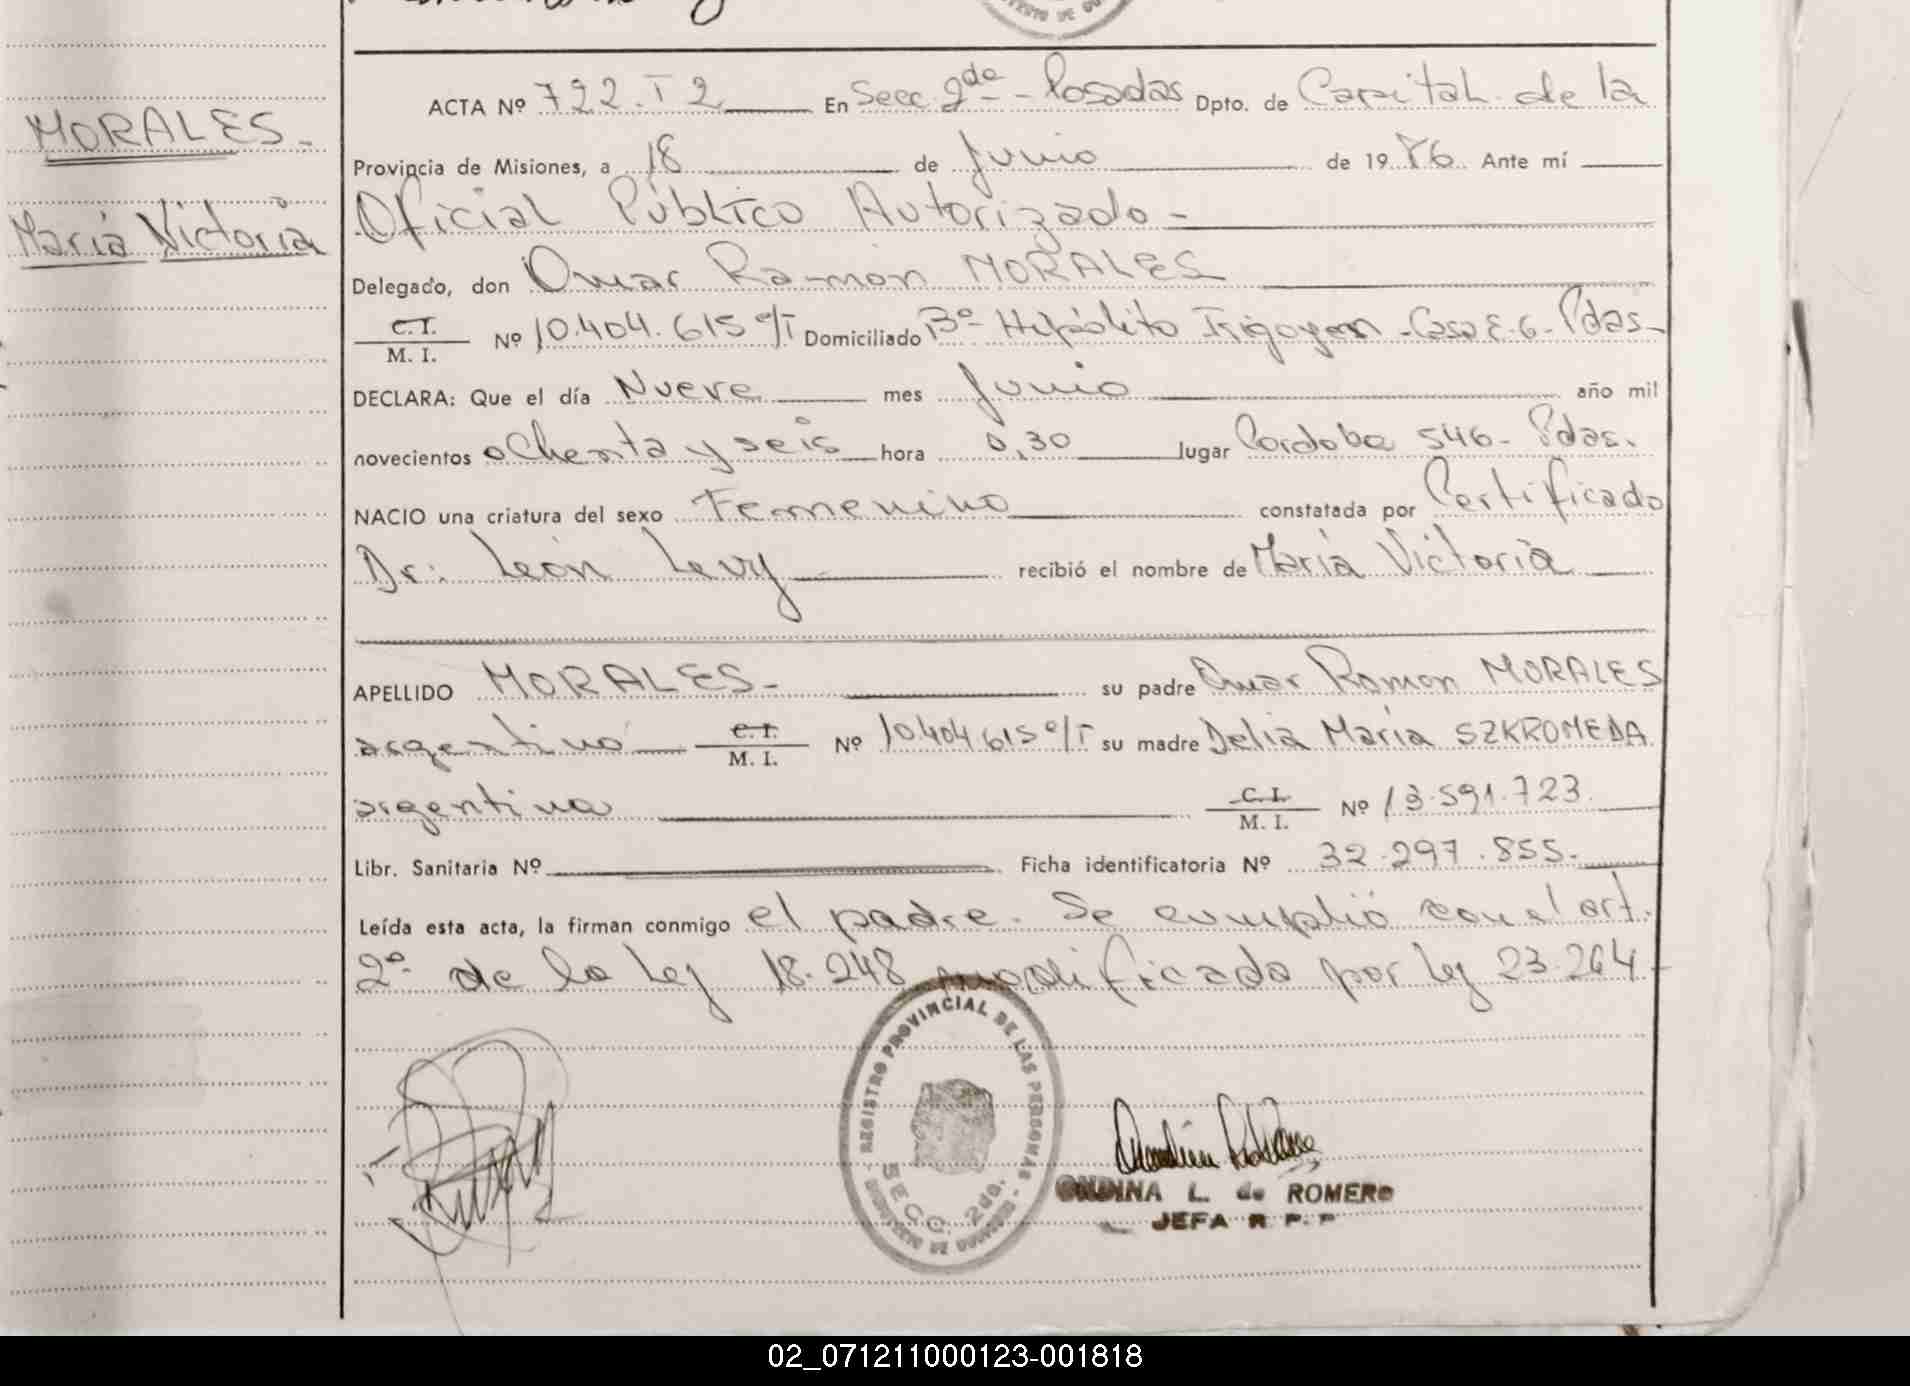 MORALES-
María Victoria
ACTA Nº 722. T 2 En Secc. 2da - Posadas Dpto. de Capital de la
Provincia de Misiones, a 18 de Junio de 1986 Ante mí
Oficial Público Autorizado-
Delegado, don Omar Ramón MORALES
C.I. M. I. Nº 10.404.615 e/T Domiciliado Bº Hipólito Irigoyen - Casa E. 6 - Pdas-
DECLARA: Que el día Nueve mes Junio año mil
novecientos ochenta y seis hora 0,30 lugar Cordoba 546- Pdas.
NACIO una criatura del sexo Femenino constatada por Certificado
Dr: León Levy recibió el nombre de María Victoria
APELLIDO MORALES- su padre Omar Ramon MORALES
argentino C.I. M. I. Nº 10.404.615 e/T su madre Delia María SZKROMEDA
argentina C.I. M. I. Nº 13.591.723
Libr. Sanitaria Nº Ficha identificatoria Nº 32.297.855-
Leída esta acta, la firman conmigo el padre. Se cumplió con el art.
2º de la Ley 18.248 modificada por Ley 23.264-
REGISTRO PROVINCIAL DE LAS PERSONAS
SECC. 2da.
ONDINA L. de ROMERO
JEFA R P. P
02_071211000123-001818